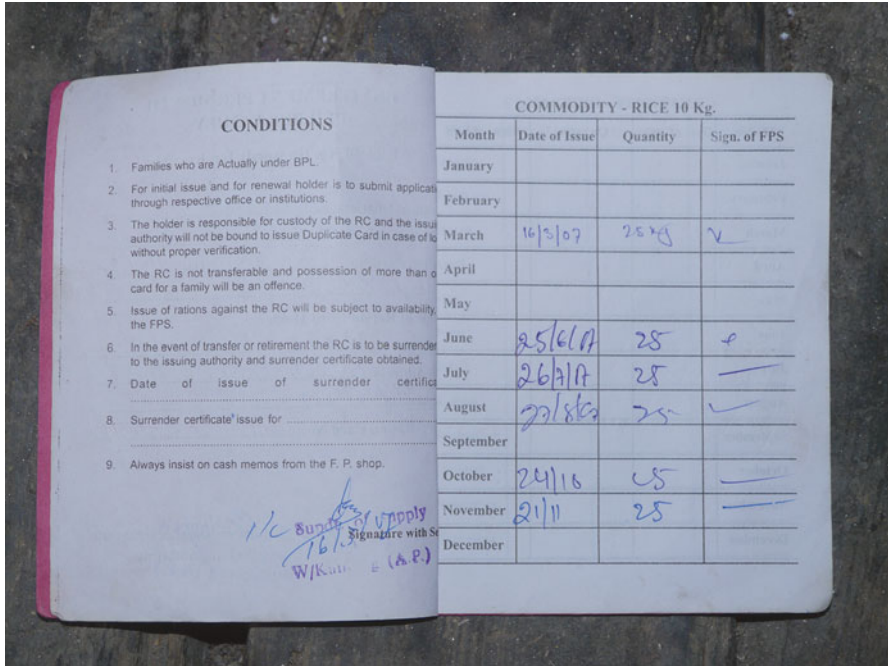 CONDITIONS
1. Families who are Actually under BPL.
2. For initial issue and for renewal holder is to submit applicati
through respective office or institutions.
3. The holder is responsible for custody of the RC and the issui
authority will not be bound to issue Duplicate Card in case of lo
without proper verification.
4. The RC is not transferable and possession of more than o
card for a family will be an offence.
5. Issue of rations against the RC will be subject to availability
the FPS.
6. In the event of transfer or retirement the RC is to be surrender
to the issuing authority and surrender certificate obtained.
7. Date of issue of surrender certific
8. Surrender certificate issue for
9. Always insist on cash memos from the F. P. shop.
I/C
Signature with Se
(A.P.)
COMMODITY - RICE 10 Kg.
Month Date of Issue Quantity Sign. of FPS
January
February
March 16/3/07 25 kg
April
May
June 25/6/ 25
July 26/7/ 25
August 27/8/ 25
September
October 24/10 25
November 21/11 25
December